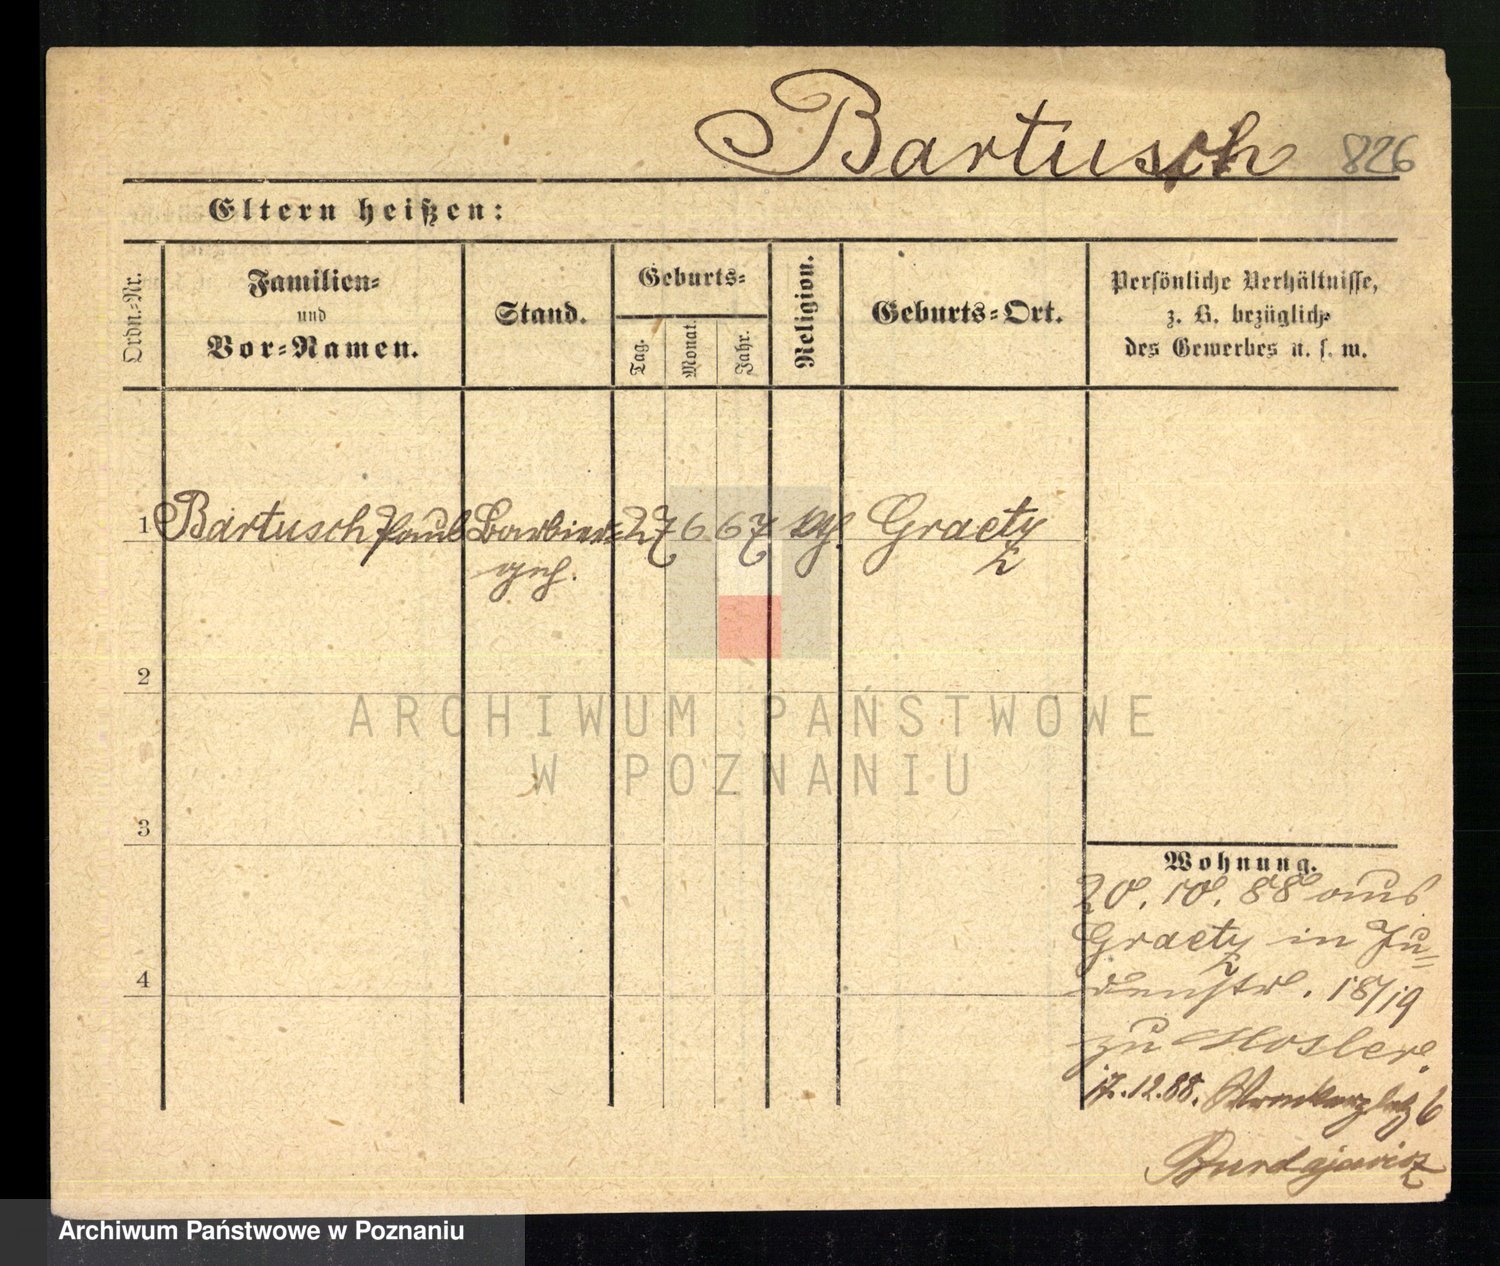 Bartusch 826
Eltern heißen:
Ordn.-Nr.
Familien-
und
Vor-Namen.
Stand.
Geburts-
Tag.
Monat.
Jahr.
Religion.
Geburts-Ort.
Persönliche Verhältnisse,
z. B. bezüglich
des Gewerbes u. s. w.
1 Bartusch Paul Barbier- 27 6 67 Graetz
geh.
2
3
4
Wohnung.
20. 10. 88 aus
Graetz in Ju-
denstr. 18/19
zu Hosler.
17.12.88. Wronkerplatz 6
Burdajewicz
ARCHIWUM PAŃSTWOWE
W POZNANIU
Archiwum Państwowe w Poznaniu